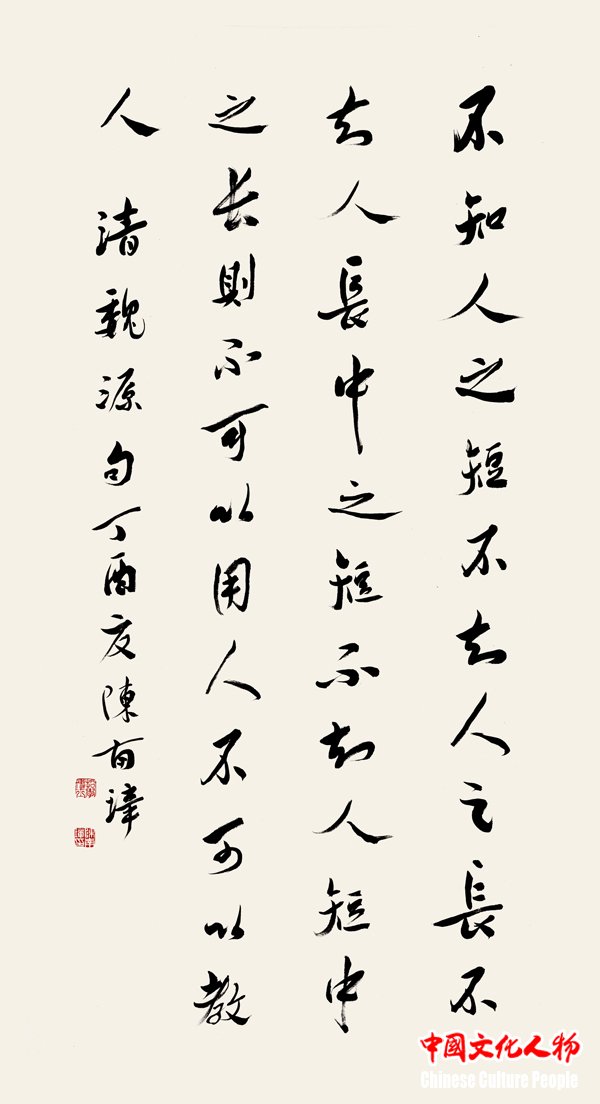 不知人之短不知人之長不
知人長中之短不知人短中
之长則不可以用人不可以教
人 清魏源句丁酉夏陳
中國文化人物
Chinese Culture People